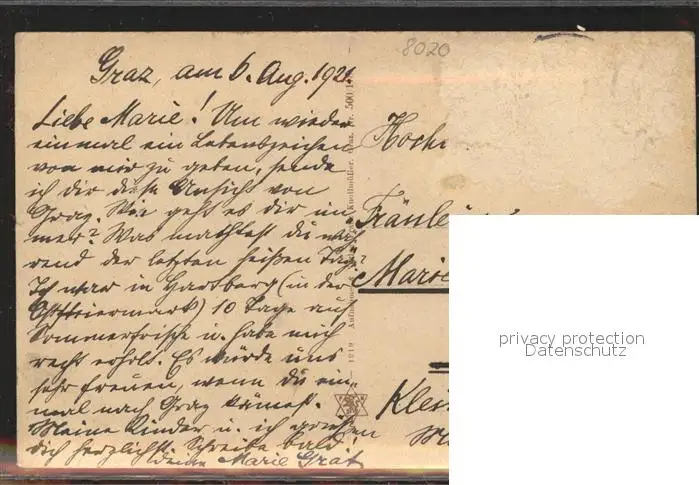 8020
Graz, am 6. Aug. 1921.
Liebe Marie! Um wieder
einmal ein Lebenszeichen
von mir zu geben, sende
ich dir diese Ansicht von
Graz. Wie geht es dir im
mer? Was machtest du wäh
rend der letzten heißen Tage?
Ich war in Hartberg (in der
Oststeiermark) 10 Tage auf
Sommerfrische u. habe mich
recht erholt. Es würde uns
sehr freuen, wenn du ein-
mal nach Graz kämest.
Meine Kinder u. ich grüßen
dich herzlichst. Schreibe bald!
deine Marie Grat
1919
Hoch
Fräulein
Marie
Klei
privacy protection
Datenschutz